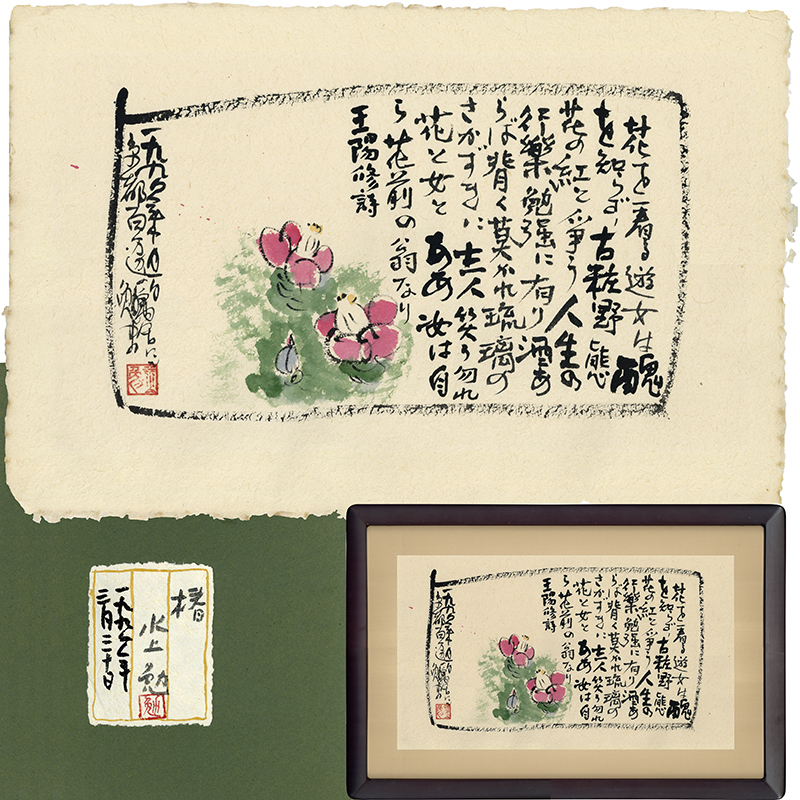 花を看る遊女は醜
を知らず 古粧野態
花の紅と争う 人生の
行樂 勉强に有り 酒あ
らば背く莫かれ琉璃の
さかずきに 主人笑う勿れ
花と女と ああ 汝は自
ら花前の翁なり
王陽修詩
一九九〇年
京都百万遍
椿
水上勉
一九九〇年
三月三十日
勉
花を看る遊女は醜
を知らず 古粧野態
花の紅と争う 人生の
行樂 勉强に有り 酒あ
らば背く莫かれ琉璃の
さかずきに 主人笑う勿れ
花と女と ああ 汝は自
ら花前の翁なり
王陽修詩